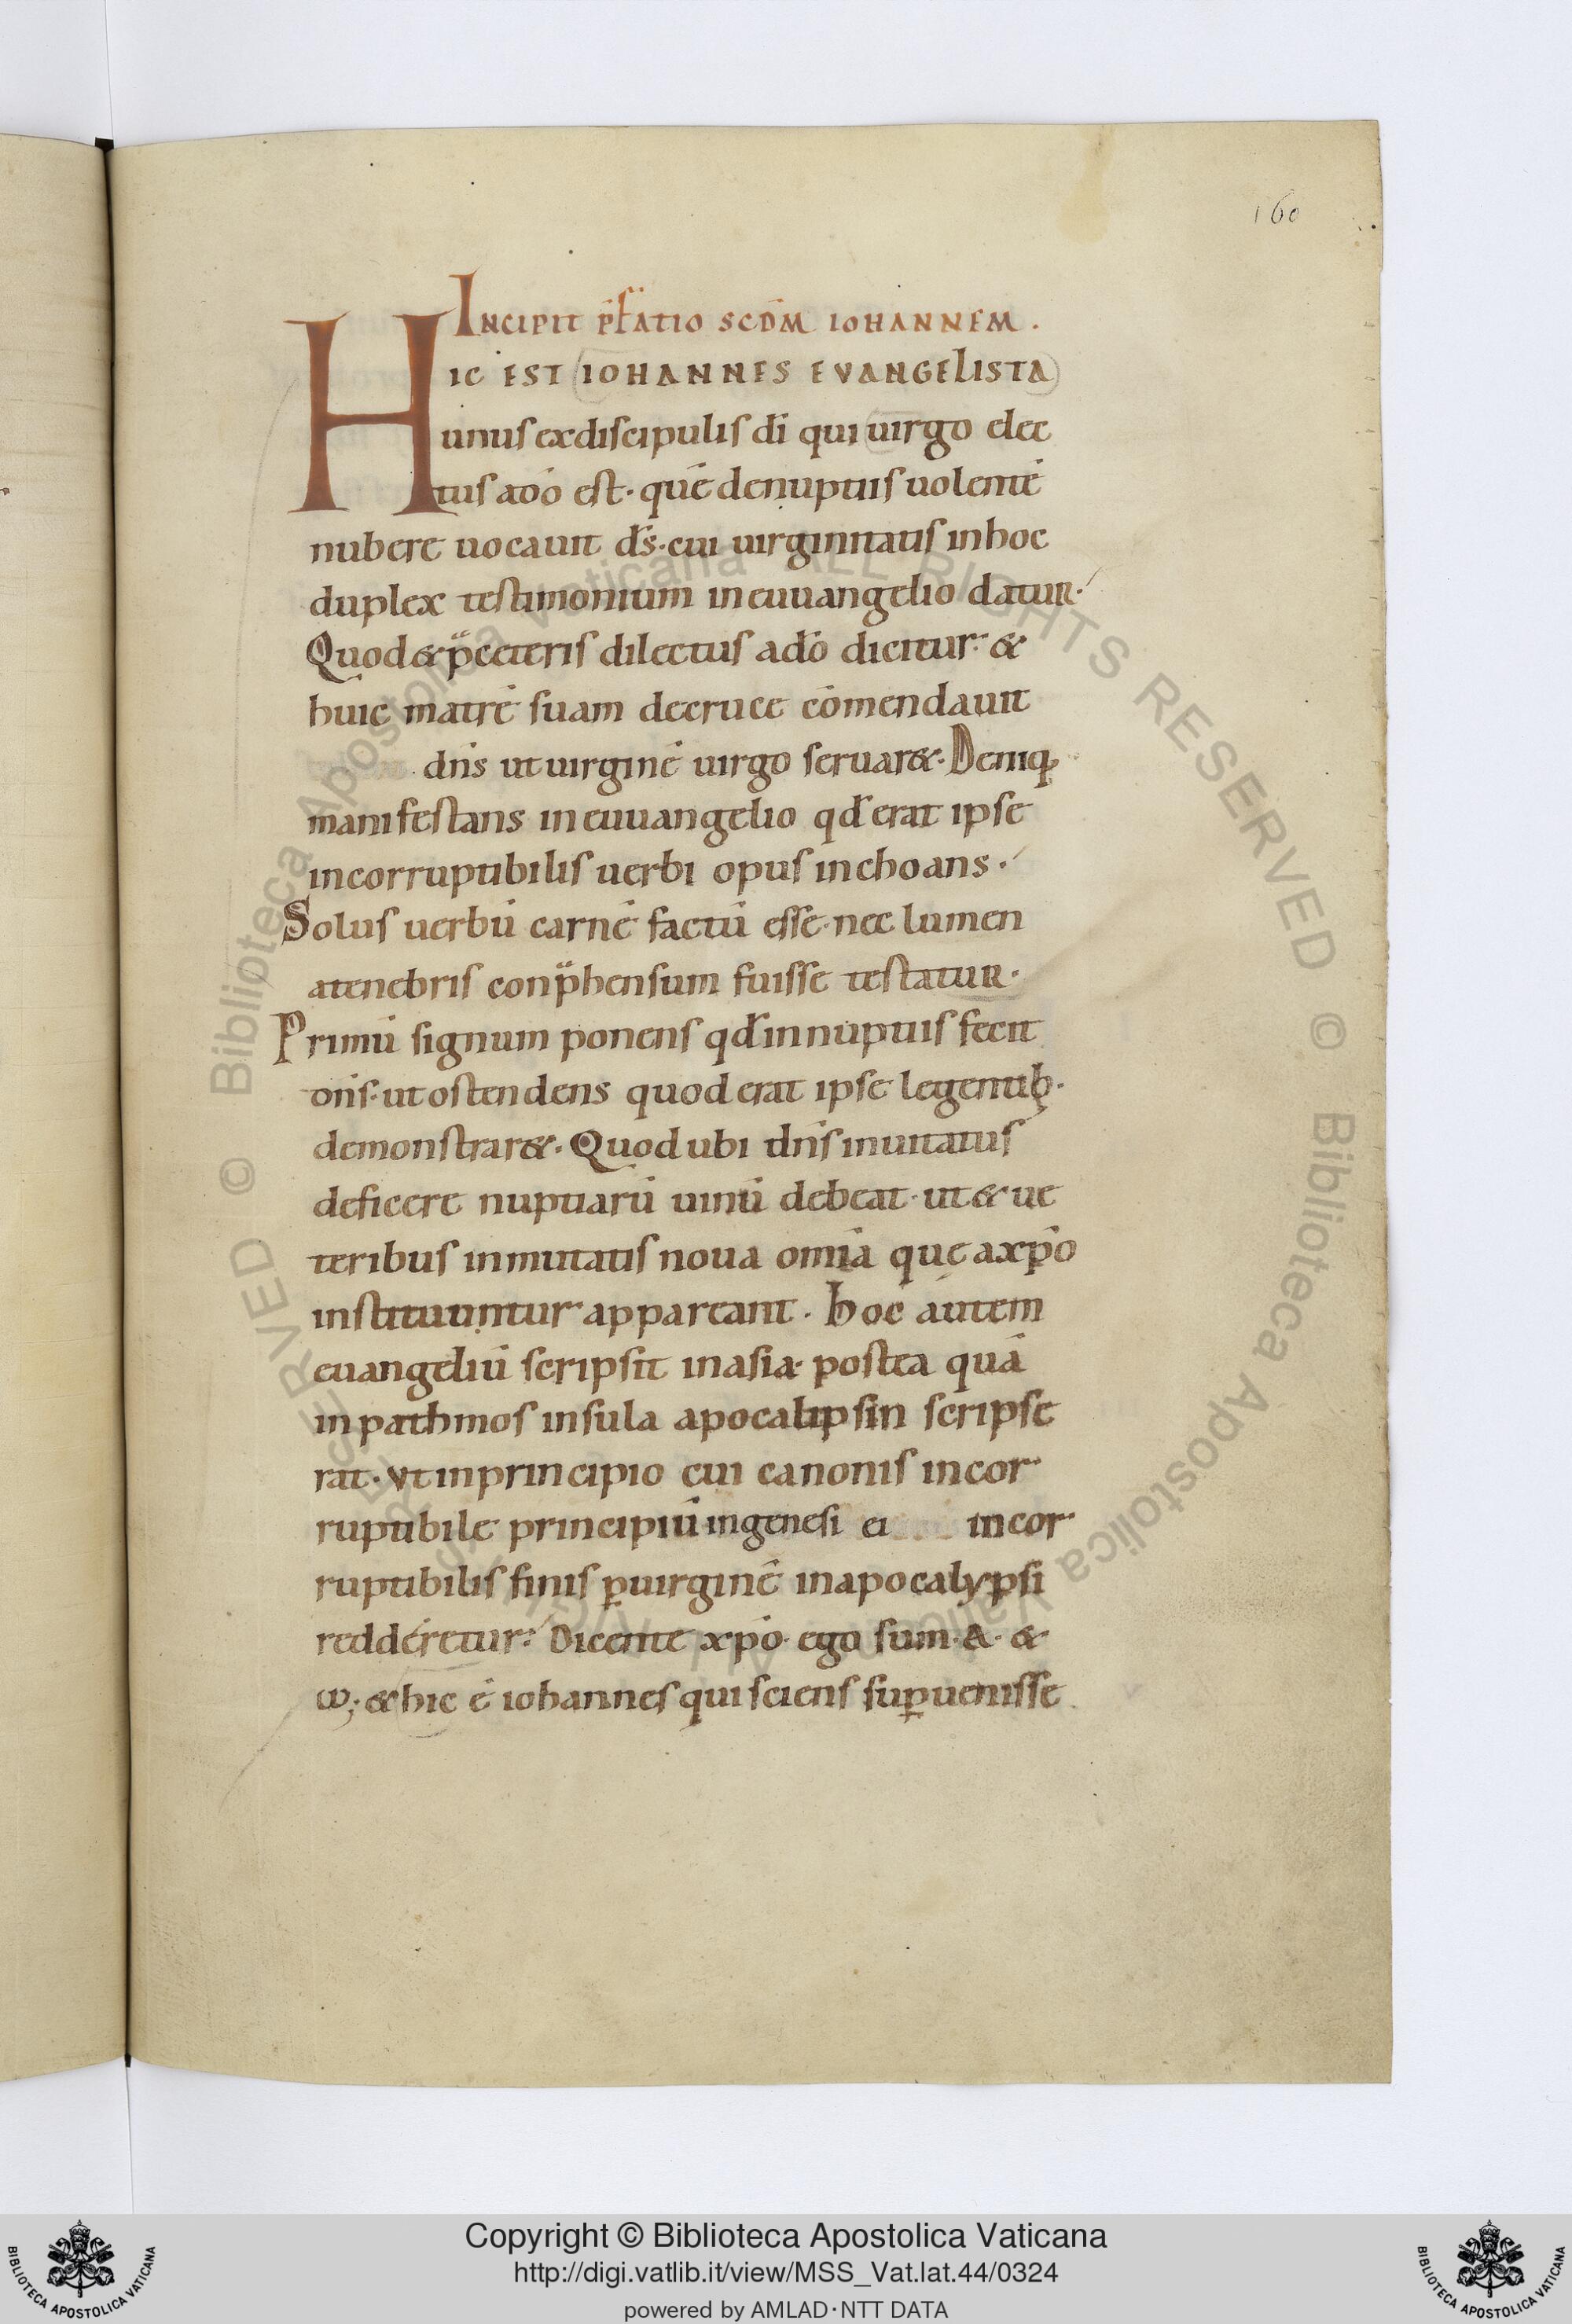 160
INCIPIT p̄fatio SCDM̄ IOHANNEM.
HIC EST IOHANNES EVANGELISTA
unus ex discipulis dī qui virgo elec
tus a dō est. quē de nuptiis uolentē
nubere uocauit d̄s. cui uirginitatis in hoc
duplex testimonium in euuangelio datur.
Quod & p̄ ceteris dilectus a dō dicitur. &
huic matrē suam de cruce cōmendauit
dn̄s ut uirginē uirgo seruar&. Deniq;
manifestans in euuangelio qđ erat ipse
incorruptibilis uerbi opus inchoans.
Solus uerbū carnē factū esse. nec lumen
a tenebris conp̄hensum fuisse testatur.
Primū signum ponens qđ in nuptiis fecit
dn̄s. ut ostendens quod erat ipse legentib;
demonstrar&. Quod ubi dn̄s inuitatus
deficere nuptiarū uinū debeat. ut & ue
teribus inmutatis noua om̄ia quę a xp̄o
instituuntur appareant. hoc autem
euangeliū scripsit in asia. postea quā
in pathmos insula apocalipsin scripse
rat. Vt in principio cui canonis incor
ruptibile principiū in genesi ei incor
ruptibilis finis ꝑ uirginē in apocalypsi
redderetur. Dicente xp̄o. ego sum. A. &
ω; & hic ē iohannes qui sciens suꝑuenisse
© Biblioteca Apostolica Vaticana ALL RIGHTS RESERVED © Biblioteca Apostolica Vaticana ALL RIGHTS RESERVED
Copyright © Biblioteca Apostolica Vaticana
http://digi.vatlib.it/view/MSS_Vat.lat.44/0324
powered by AMLAD·NTT DATA
BIBLIOTECA APOSTOLICA VATICANA
BIBLIOTECA APOSTOLICA VATICANA